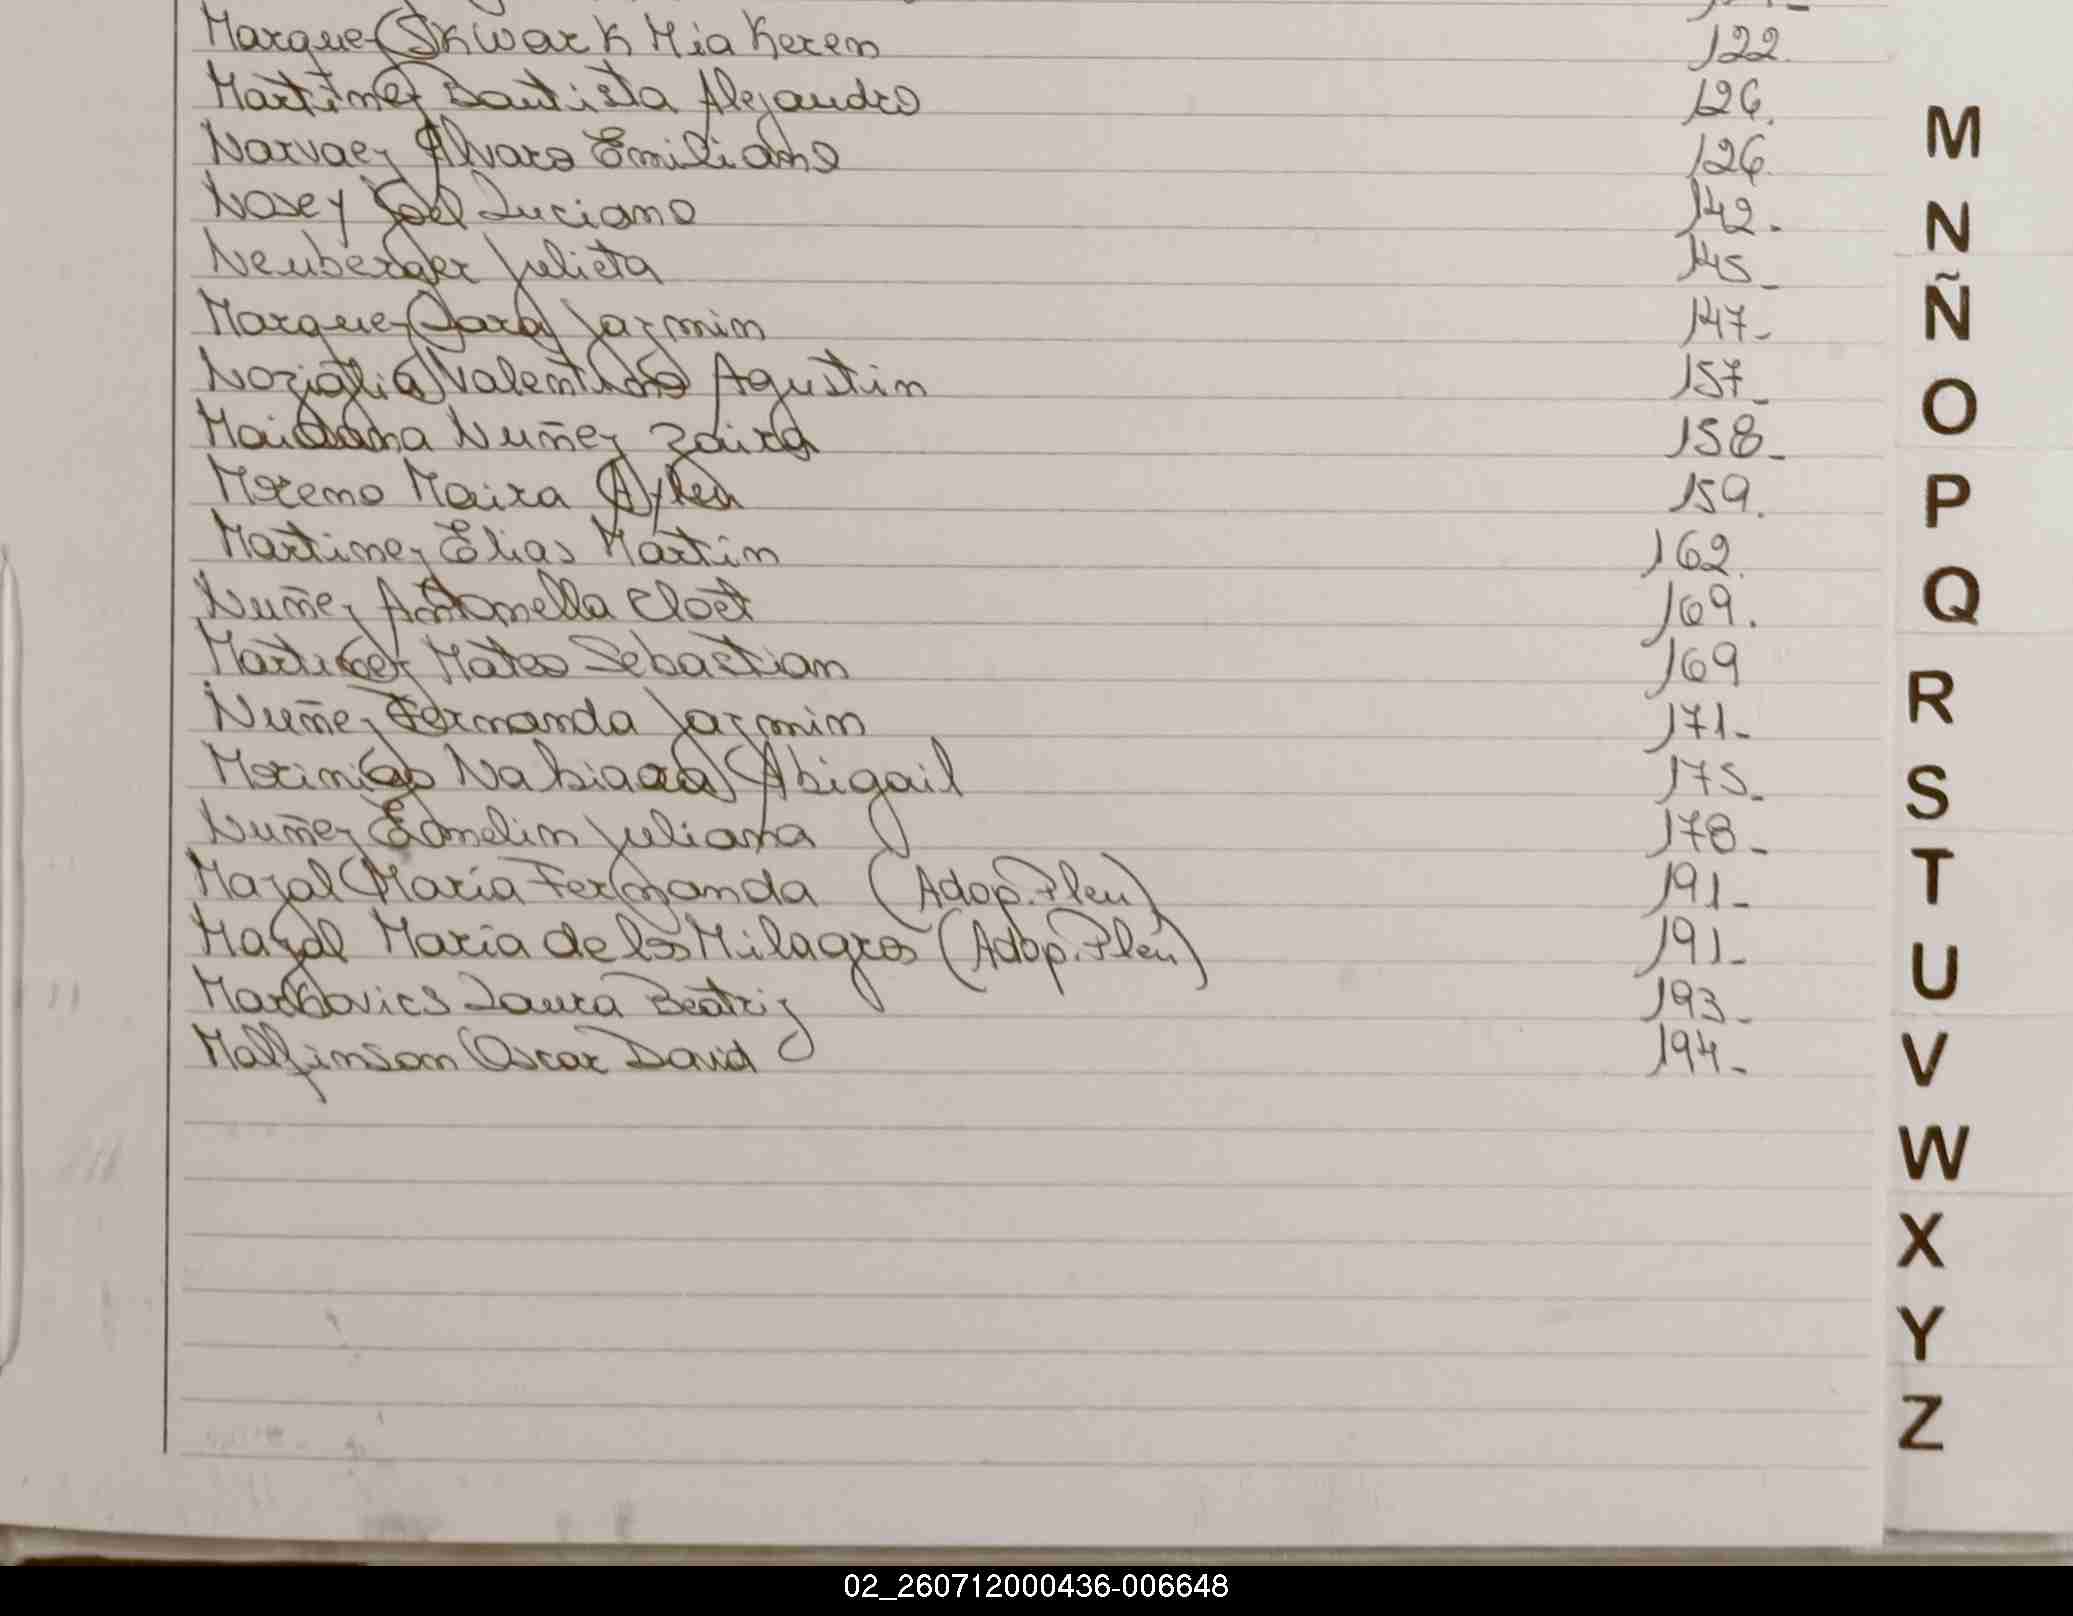 Marquez Skwark Mia Keren 122.
Martinez Bautista Alejandro 126.
Narvaez Alvaro Emiliano 126.
Nosey Joel Luciano 142.
Neuberger Julieta 145_
Marquez Sara Jazmin 147-
Noziglia Valentino Agustin 157_
Maidana Nuñez Zaira 158_
Moreno Maira Aylen 159.
Martinez Elias Martin 162.
Nuñez Antonella Cloet 169.
Martinez Mateo Sebastian 169
Nuñez Fernanda Jazmin 171-
Morinigo Nahiara Abigail 175_
Nuñez Evmelin Juliana 178_
Mazal Maria Fernanda (Adop. Plen) 191_
Mazal Maria de los Milagros (Adop. Plen) 191_
Markovics Laura Beatriz 193_
Malfinson Oscar David 194-
M
N
Ñ
O
P
Q
R
S
T
U
V
W
X
Y
Z
02_260712000436-006648